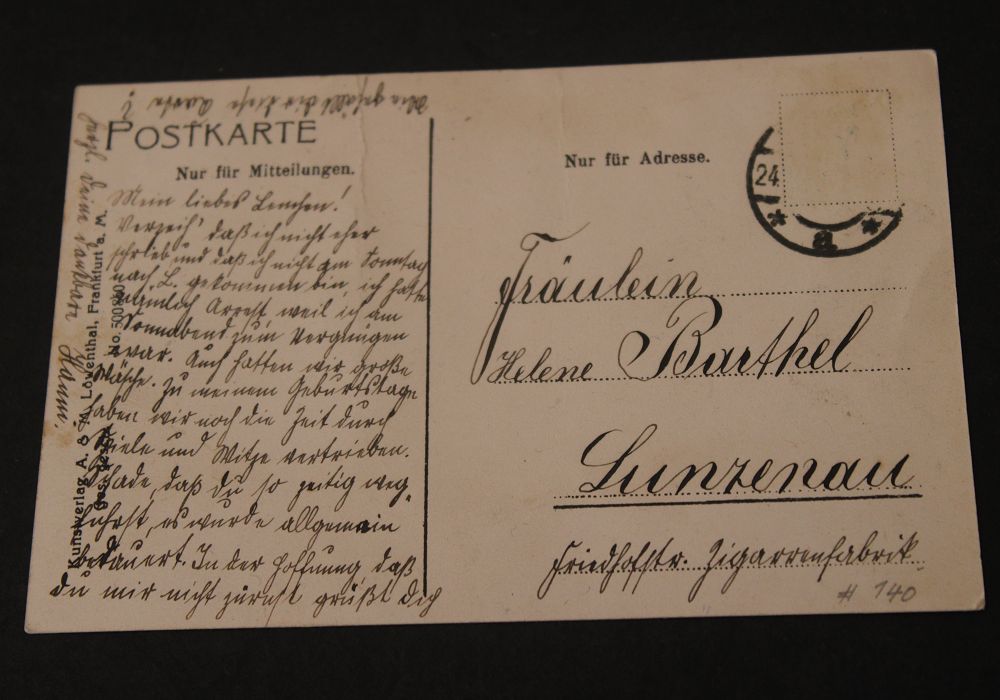 Wie gefällt dir diese Karte?
POSTKARTE
Nur für Mitteilungen.
Mein liebes Lenchen!
Verzeih' daß ich nicht eher
schrieb und daß ich nicht am Sonntag
nach L. gekommen bin, ich hatte
nämlich Arrest weil ich am
Sonnabend zum Vergnügen
war. Auch hatten wir große
Wäsche. Zu meinem Geburtstage
haben wir noch die Zeit durch
Spiele und Witze vertrieben.
Schade, daß du so zeitig weg-
fuhrst, es wurde allgemein
bedauert. In der Hoffnung daß
du mir nicht zürnst grüßt dich
herzl. Deine dankbare
Kunstverlag A. & M. Löwenthal, Frankfurt a. M.
No. 500840
ges. gesch.
Nur für Adresse.
24
* a *
Fräulein
Helene Barthel
Lunzenau
Friedhofstr. Zigarrenfabrik
# 140